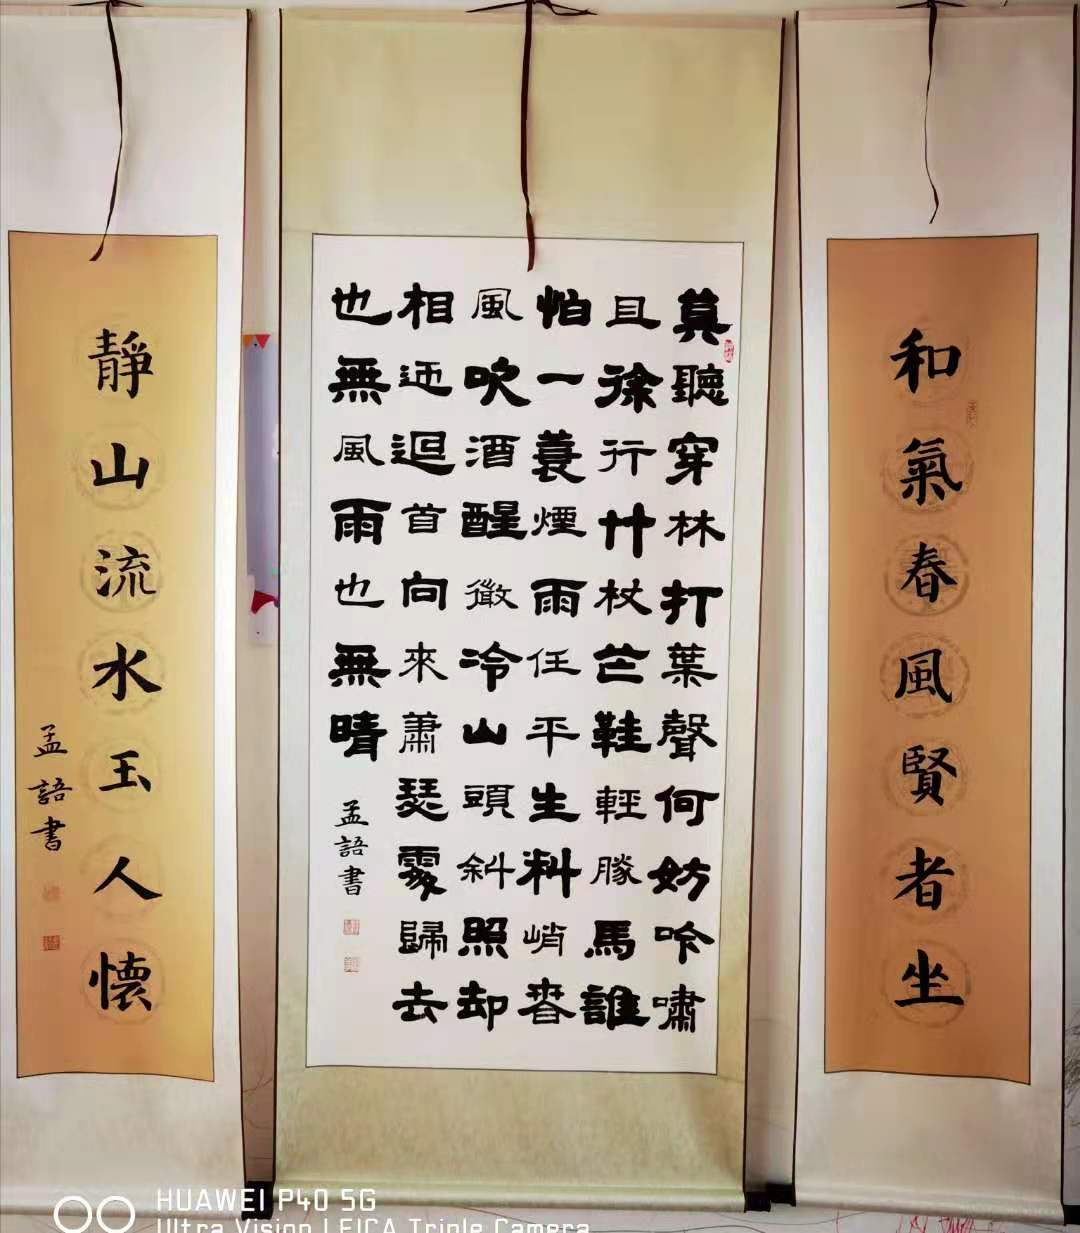 和氣春風賢者坐
莫聽穿林打葉聲何妨吟嘯
且徐行竹杖芒鞋輕勝馬誰
怕一蓑煙雨任平生料峭春
風吹酒醒微冷山頭斜照却
相迎迴首向來蕭瑟處歸去
也無風雨也無晴
孟語書
靜山流水玉人懷
孟語書
HUAWEI P40 5G
Ultra Vision LEICA Triple Camera